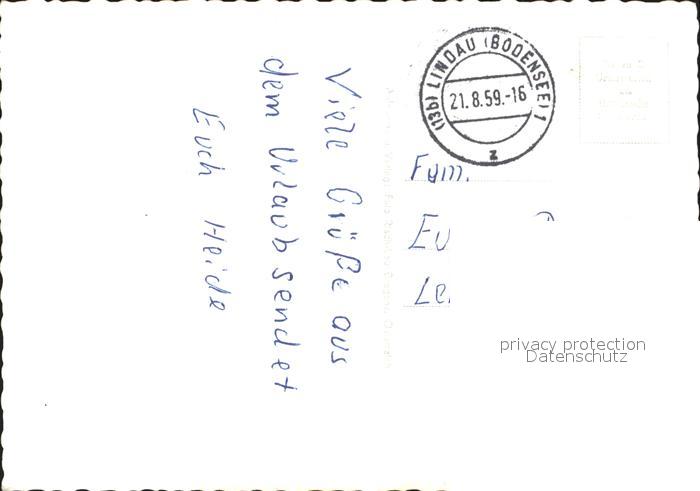 Viele Grüße aus
dem Urlaub sendet
Euch Heide
(13b) LINDAU (BODENSEE) 1
21.8.59.-16
z
Fam.
Eu
Le
privacy protection
Datenschutz